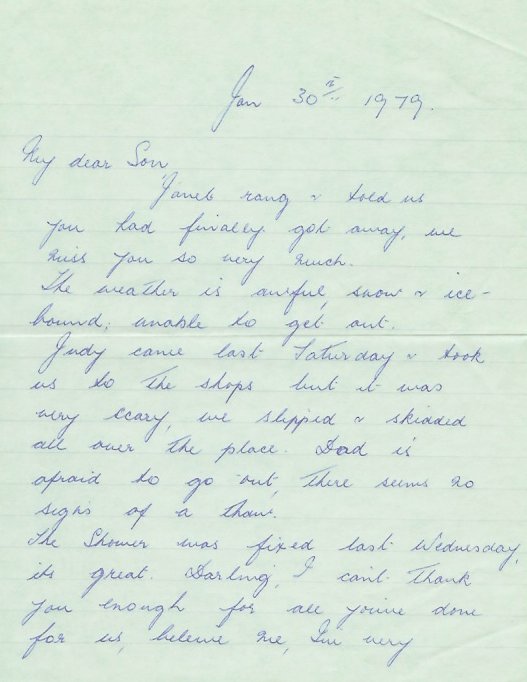 Jan 30th 1979.
My dear Son,
Janet rang & told us
you had finally got away, we
miss you so very much.
The weather is awful, snow & ice-
bound, unable to get out.
Judy came last Saturday & took
us to the shops but it was
very scary, we slipped & skidded
all over the place. Dad is
afraid to go out, there seems no
signs of a thaw.
The Shower was fixed last Wednesday,
its great. Darling, I can't thank
you enough for all you've done
for us, beleive me, I'm very